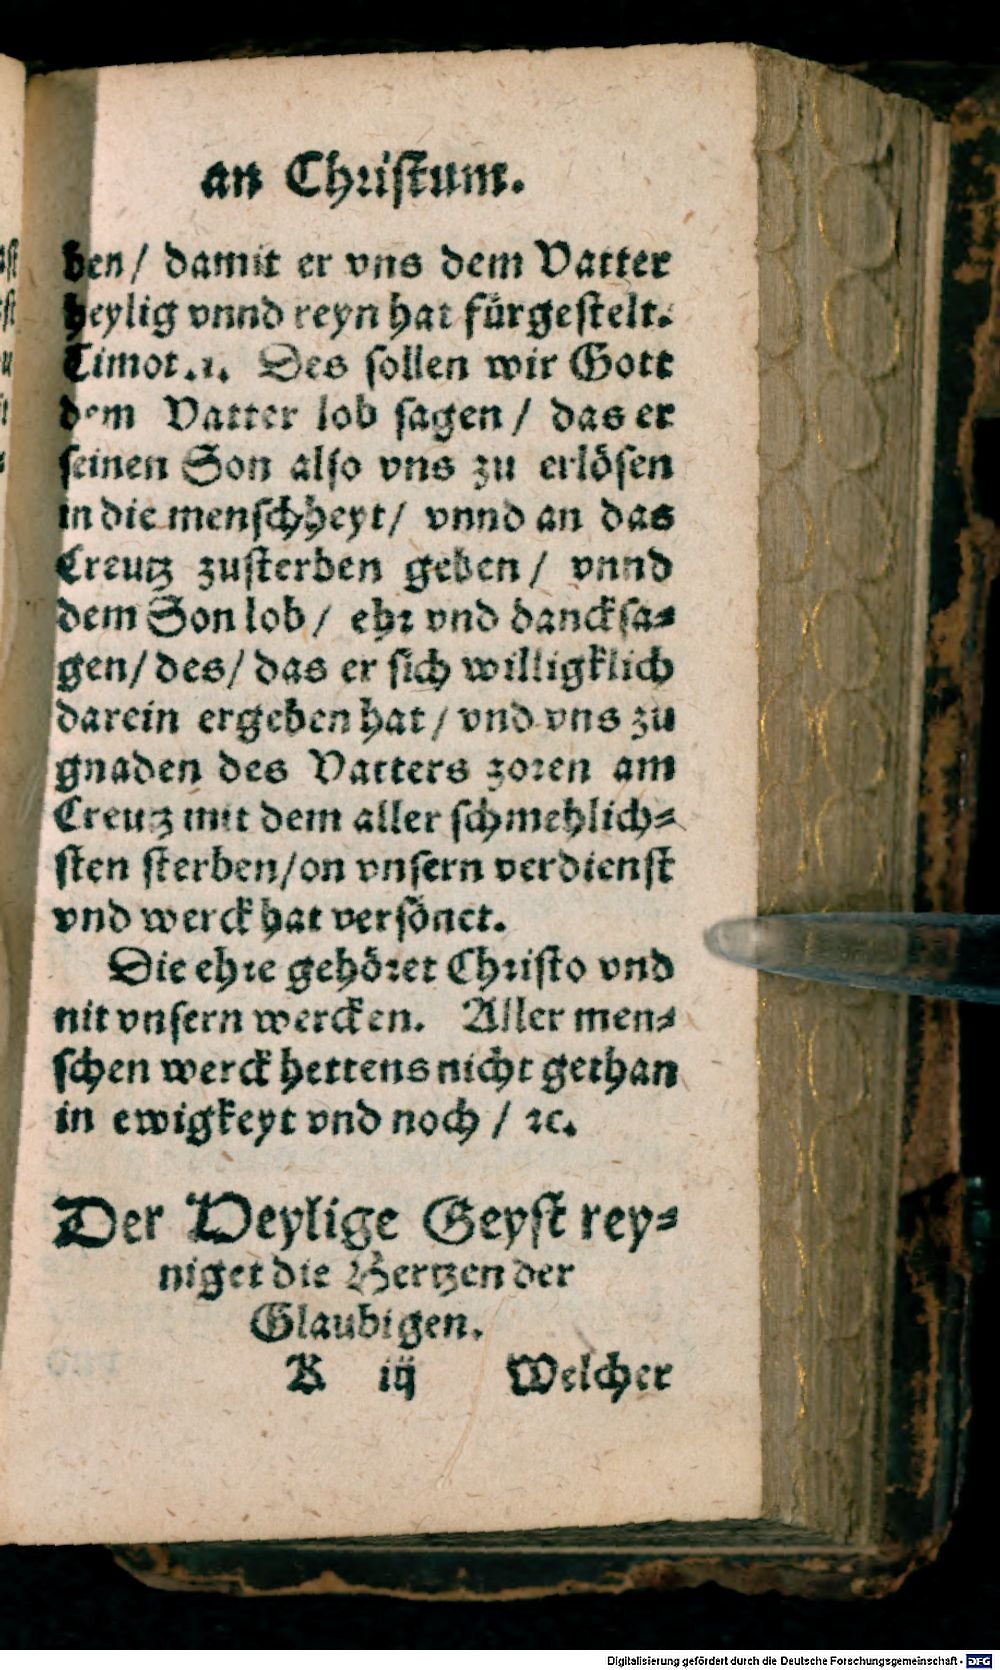 an Christum.
ben / damit er vns dem Vatter
heylig vnnd reyn hat fürgestelt.
Timot. 1. Des sollen wir Gott
dem Vatter lob sagen / das er
seinen Son also vns zu erlösen
in die menschheyt / vnnd an das
Creutz zusterben geben / vnnd
dem Son lob / ehr vnd dancksa⸗
gen / des / das er sich willigklich
darein ergeben hat / vnd vns zu
gnaden des Vatters zoren am
Creutz mit dem aller schmehlich⸗
sten sterben / on vnsern verdienst
vnd werck hat versönet.
Die ehre gehöret Christo vnd
nit vnsern wercken. Aller men⸗
schen werck hettens nicht gethan
in ewigkeyt vnd noch / ꝛc.
Der Heylige Geyst rey⸗
niget die Hertzen der
Glaubigen.
K iij Welcher
Digitalisierung gefördert durch die Deutsche Forschungsgemeinschaft - DFG